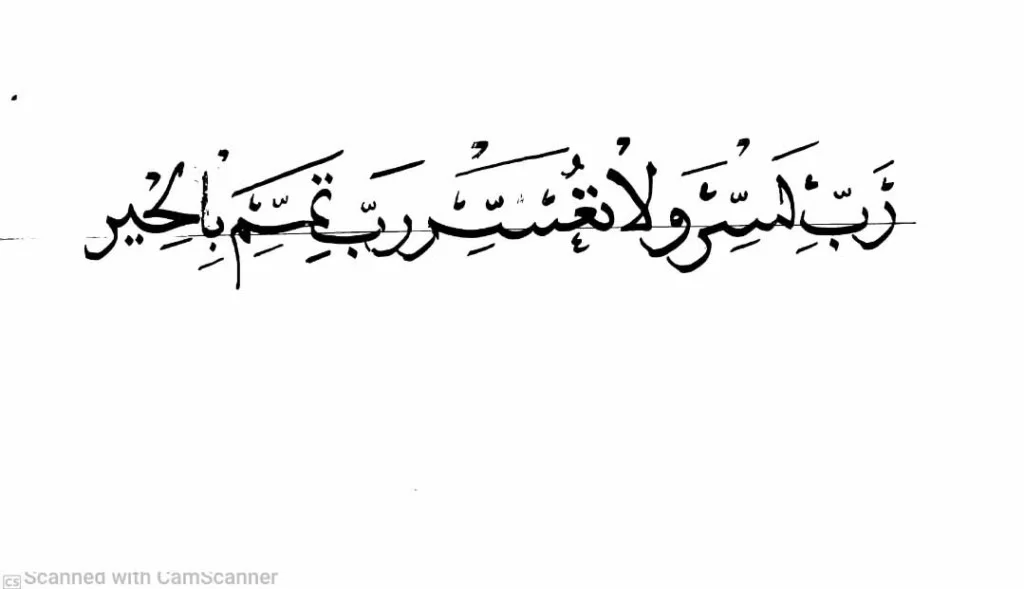 رَبِّ يَسِّرْ وَلَا تُعَسِّرْ رَبِّ تَمِّمْ بِالْخَيْرِ
CS Scanned with CamScanner